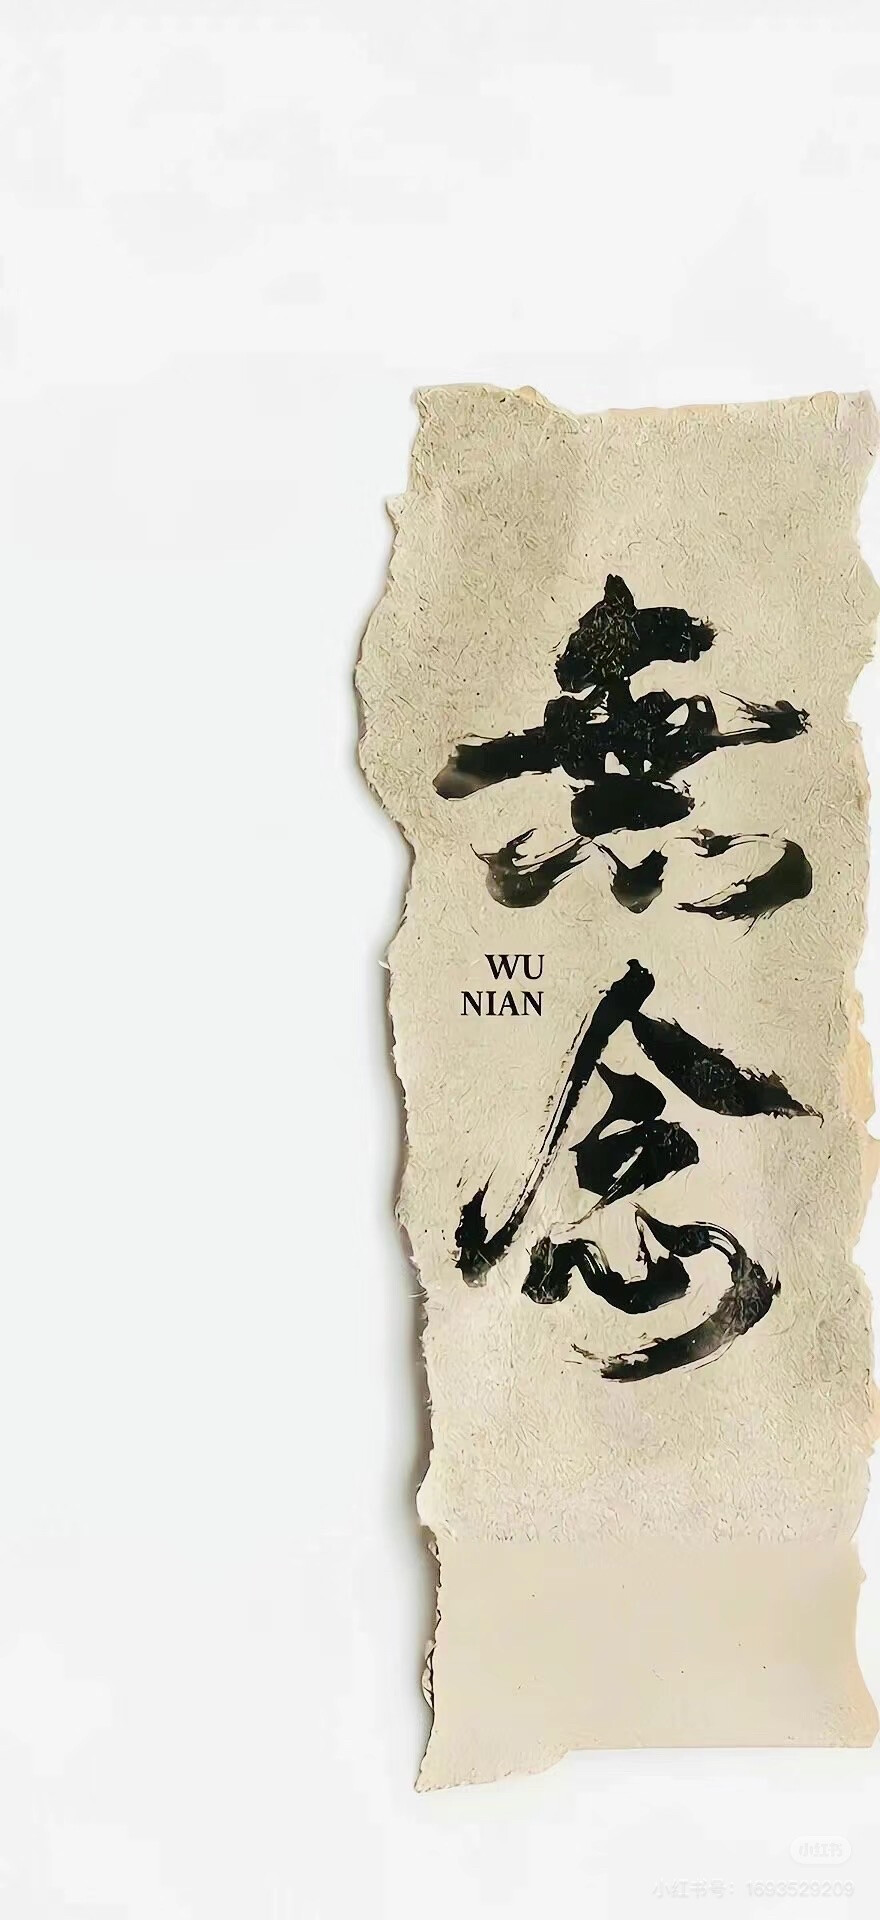 無念
WU
NIAN
小红书
小红书号：1693529209